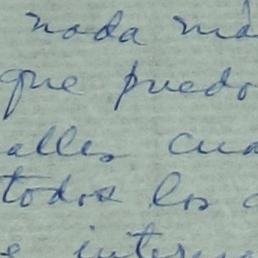 nada má
que puedo
alles cua
todos los c
e intern